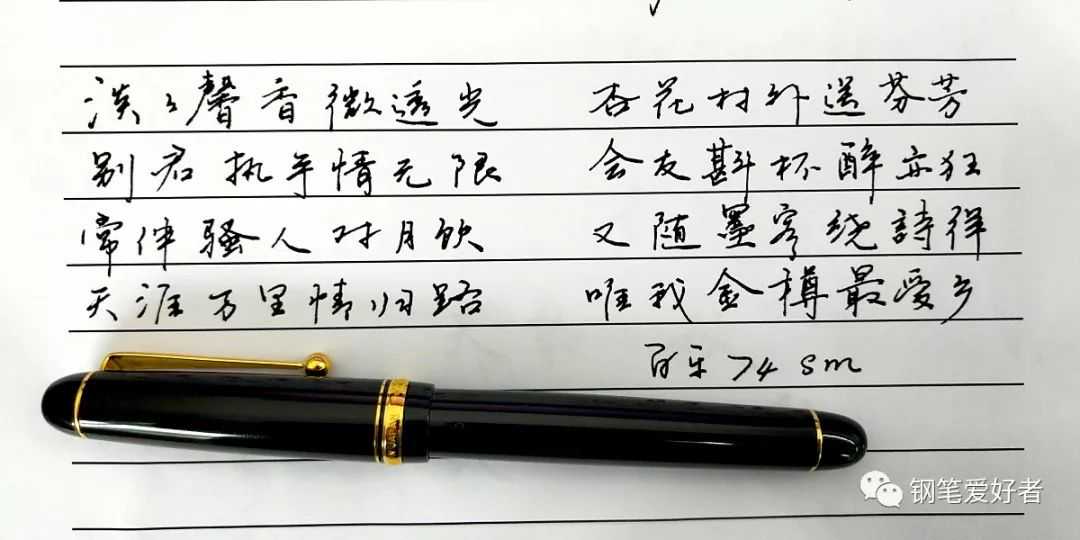 淡々馨香微透光 杏花村外送芬芳
别君执手情无限 会友斟杯醉亦狂
常伴骚人对月饮 又随墨客绕詩徉
天涯万里情归路 唯我金樽最爱乡
百乐74 SM
钢笔爱好者